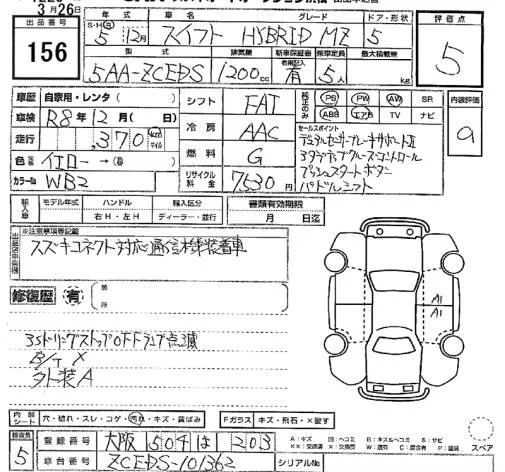 3月26日
出品番号 156
年式 車名 グレード ドア・形状 評価点
S・H(R) 5年 12月 スイフト HYBRID MZ 5
型式 排気量 新車保証書 乗車定員 最大積載量 5
5AA-ZCEDS 1200cc 有 5人 kg
車歴 自家用・レンタ( ) シフト FAT PS PW AW SR 内装評価
車検 R8年12月( 日) 冷房 AAC ABS エアB TV ナビ
走行 ,370km マイル 燃料 G セールスポイント
デュアルセンサーブレーキサポートII
アダプティブクルーズコントロール
プッシュスタートボタン
パドルシフト
色 イエロー→( ) リサイクル料金 7530円
カラーNo. WB2
輸入車 モデル年式 ハンドル 輸入区分 書類有効期限
右H・左H ディーラー・並行 月 日迄
※注意事項等記載
スズキコネクト対応通信機装着車
修復歴 有 箇所
アイドリングストップOFFランプ点滅
B/T X
外装A
A1
A1
内装シート 穴・破れ・スレ・コゲ・汚れ・キズ・黄ばみ Fガラス キズ・飛石・X要す
5 登録番号 大阪 504 は 203
車台番号 ZCEDS-101362 シリアルNo.
スペア